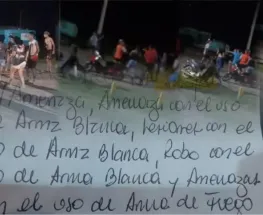 Amenazza, Amenaza con el uso
e Armz Blznca, Lesiones con el
o de Armz Blanca, Robo con el
o de Arma Blanca y Amenazas
n el uso de Arma de Fuego